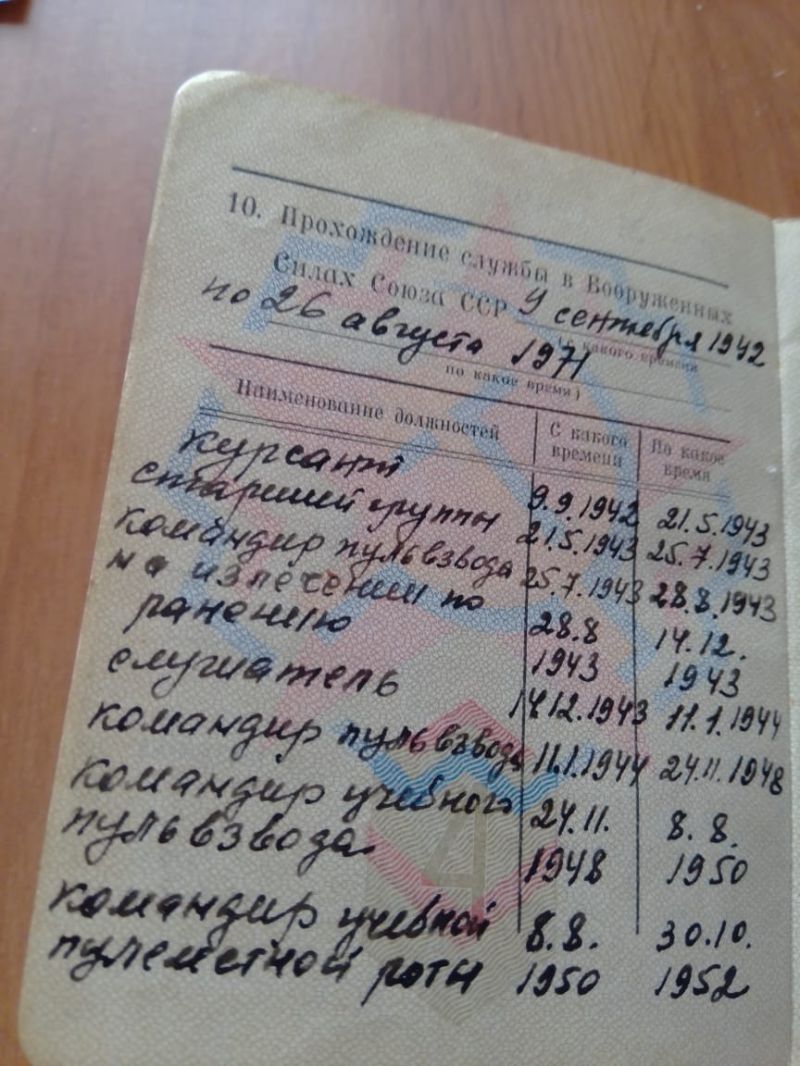 10. Прохождение службы в Вооруженных
Силах Союза ССР 9 сентября 1942
(с какого времени
по 26 августа 1971
по какое время)
Наименование должностей С какого времени По какое время
курсант 9.9.1942 21.5.1943
старший группы 21.5.1943 25.7.1943
командир пульвзвода 25.7.1943 28.8.1943
на излечении по
ранению 28.8 1943 14.12. 1943
слушатель 14.12.1943 11.1.1944
командир пульвзвода 11.1.1944 24.11.1948
командир учебного 24.11. 8.8.
пульвзвода 1948 1950
командир учебной 8.8. 30.10.
пулеметной роты 1950 1952